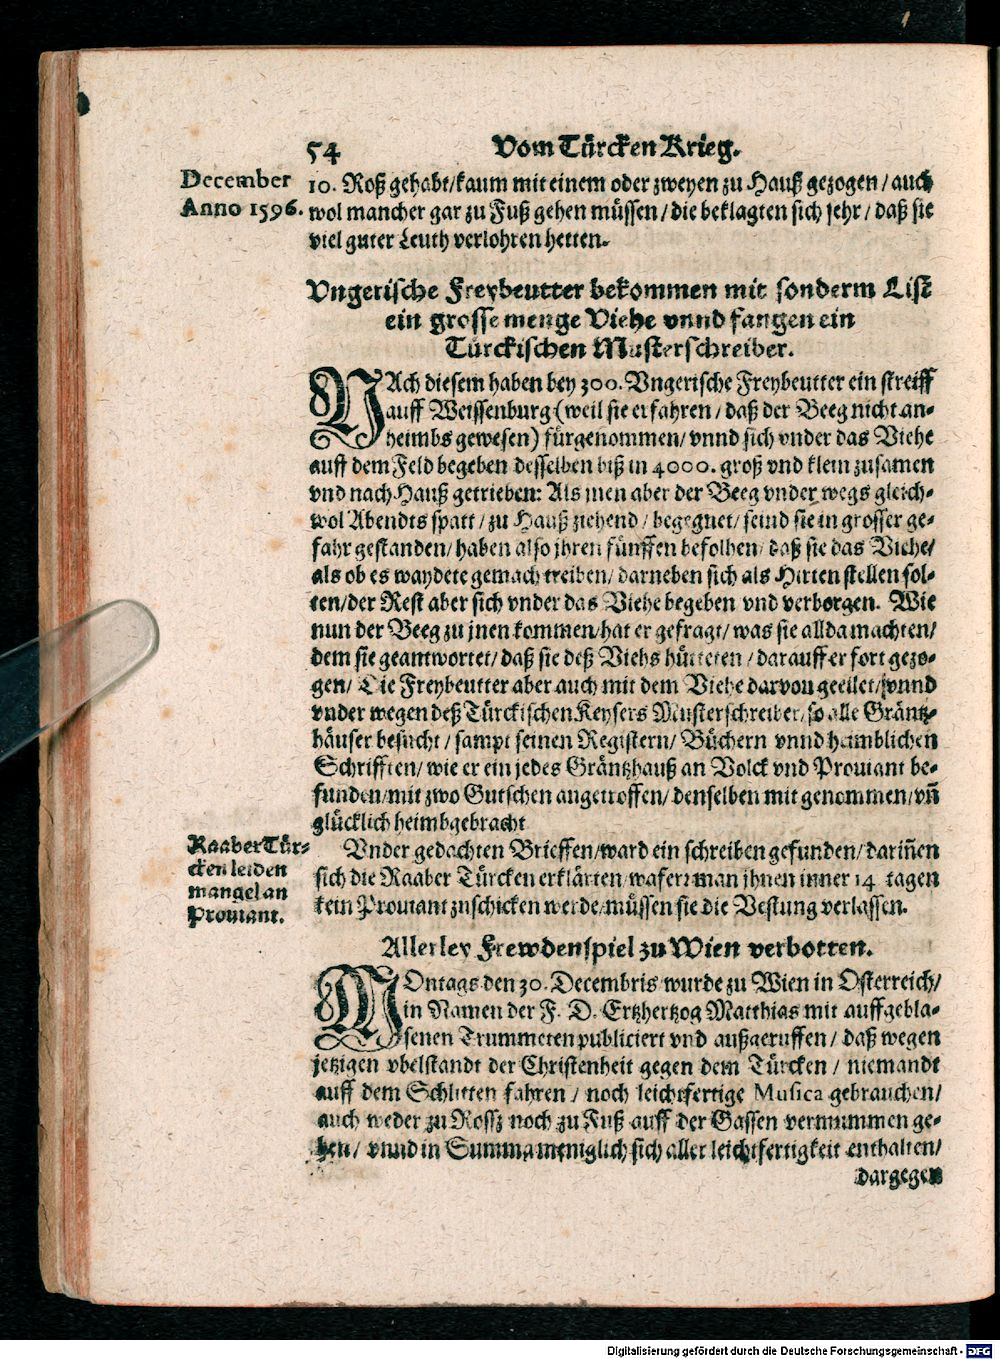 54 Vom Türcken Krieg.
December
Anno 1596.
10. Roß gehabt/kaum mit einem oder zweyen zu Hauß gezogen/auch
wol mancher gar zu Fuß gehen müssen/die beklagten sich sehr/daß sie
viel guter Leuth verlohren hetten.
Vngerische Freybeutter bekommen mit sonderm List
ein grosse menge Viehe vnnd fangen ein
Türckischen Musterschreiber.
NAch diesem haben bey 300. Vngerische Freybeutter ein streiff
auff Weissenburg (weil sie erfahren/daß der Beeg nicht an-
heimbs gewesen) fürgenommen/vnnd sich vnder das Viehe
auff dem Feld begeben desselben biß in 4000. groß vnd klein zusamen
vnd nach Hauß getrieben: Als jnen aber der Beeg vnder wegs gleich-
wol Abendts spatt/zu Hauß ziehend/begegnet/seind sie in grosser ge-
fahr gestanden/haben also jhren fünffen befolhen/daß sie das Viehe/
als ob es waydete gemach treiben/darneben sich als Hirten stellen sol-
ten/der Rest aber sich vnder das Viehe begeben vnd verborgen. Wie
nun der Beeg zu jnen kommen/hat er gefragt/was sie allda machten/
dem sie geantwortet/daß sie deß Viehs hütteten/darauff er fort gezo-
gen/Die Freybeutter aber auch mit dem Viehe darvon geeilet/vnnd
vnder wegen deß Türckischen Keysers Musterschreiber/so alle Gräntz-
häuser besucht/sampt seinen Registern/Büchern vnnd heimblichen
Schrifften/wie er ein jedes Gräntzhauß an Volck vnd Prouiant be-
funden/mit zwo Gutschen angetroffen/denselben mit genommen/vñ
glücklich heimbgebracht
Raaber Tür-
cken leiden
mangel an
Prouiant.
Vnder gedachten Brieffen/ward ein schreiben gefunden/dariñen
sich die Raaber Türcken erklärten/wafern man jhnen inner 14 tagen
kein Prouiant zuschicken werde/müssen sie die Vestung verlassen.
Allerley Frewdenspiel zu Wien verbotten.
MOntags den 30. Decembris wurde zu Wien in Osterreich/
in Namen der F. D. Ertzhertzog Matthias mit auffgebla-
senen Trummeten publiciert vnd außgeruffen/daß wegen
jetzigen vbelstandt der Christenheit gegen dem Türcken/niemandt
auff dem Schlitten fahren/noch leichtfertige Musica gebrauchen/
auch weder zu Ross noch zu Fuß auff der Gassen vermummen ge-
hen/vnnd in Summa meniglich sich aller leichtfertigkeit enthalten/
dargegen
Digitalisierung gefördert durch die Deutsche Forschungsgemeinschaft - DFG